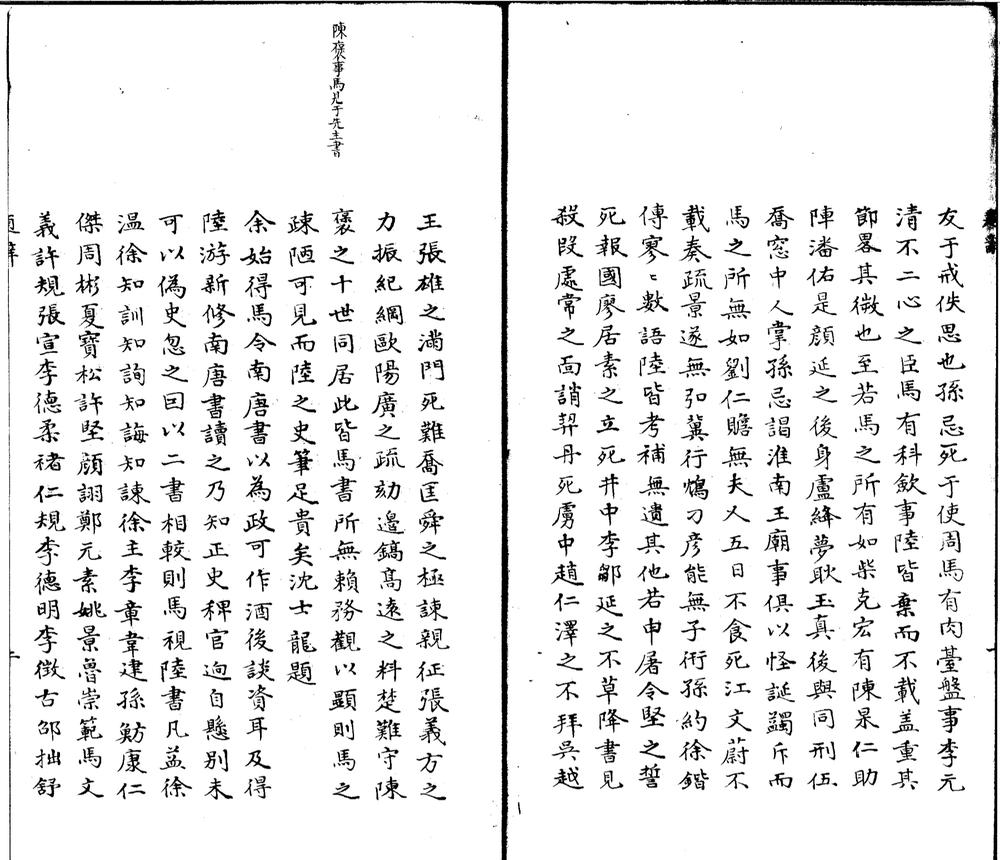 友于戒佚思也孫忌死于使周馬有肉臺盤事李元
清不二心之臣馬有科歛事陸皆棄而不載盖重其
節畧其微也至若馬之所有如柴克宏有陳杲仁助
陣潘佑是顔延之後身盧絳夢耿玉真後與同刑伍
喬窓中人掌孫忌謁淮南王廟事俱以怪誕蠲斥而
馬之所無如劉仁贍無夫人五日不食死江文蔚不
載奏疏景遂無弘冀行鴆刁彦能無子衎孫約徐鍇
傳寥〻數語陸皆考補無遺其他若申屠令堅之誓
死報國廖居素之立死井中李鄒延之不草降書見
殺段處常之面誚契丹死虜中趙仁澤之不拜吳越
王張雄之滿門死難喬匡舜之極諫親征張義方之
力振紀綱歐陽廣之疏劾邉鎬髙逺之料楚難守陳
褒之十世同居此皆馬書所無賴務觀以顯則馬之
疎陋可見而陸之史筆足貴矣沈士龍題
余始得馬令南唐書以為政可作酒後談資耳及得
陸游新修南唐書讀之乃知正史稗官逈自懸别未
可以偽史忽之囙以二書相較則馬視陸書凡益徐
温徐知訓知詢知誨知諫徐主李章韋建孫魴康仁
傑周彬夏寶松許堅顔詡鄭元素姚景魯崇範馬文
義許規張宣李德柔禇仁規李德明李徴古邵拙舒
陳褒事馬見于先主書